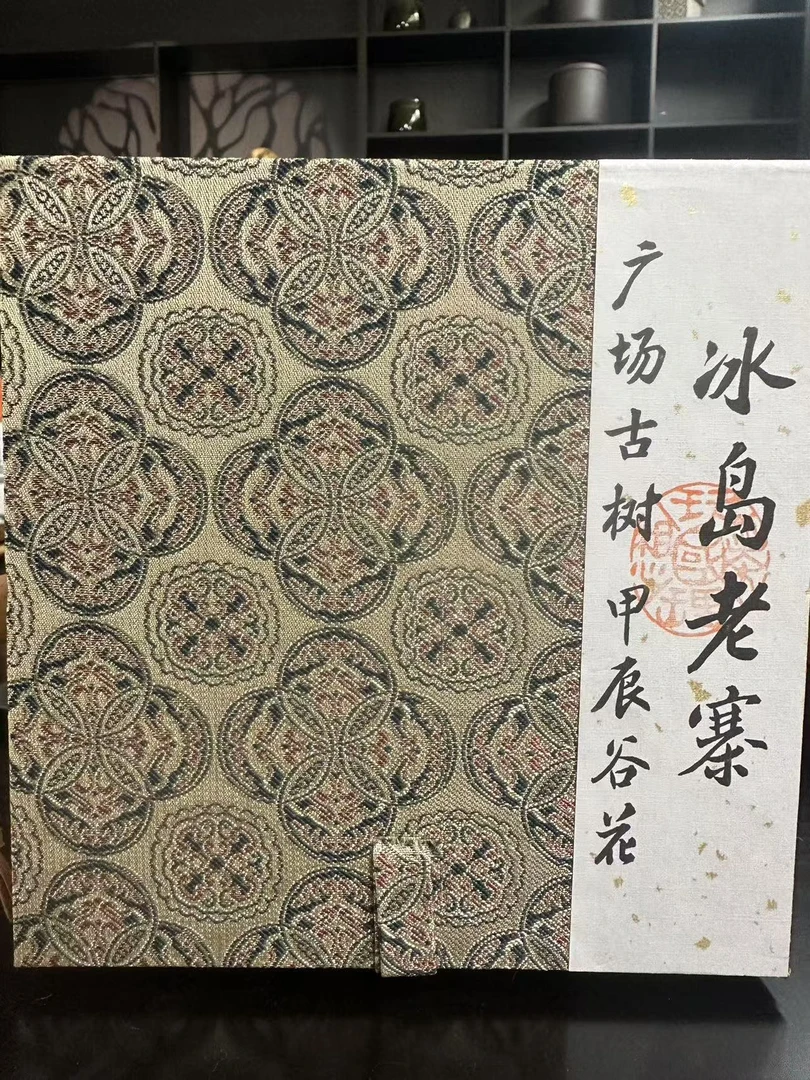 冰岛老寨
广场古树甲辰谷花